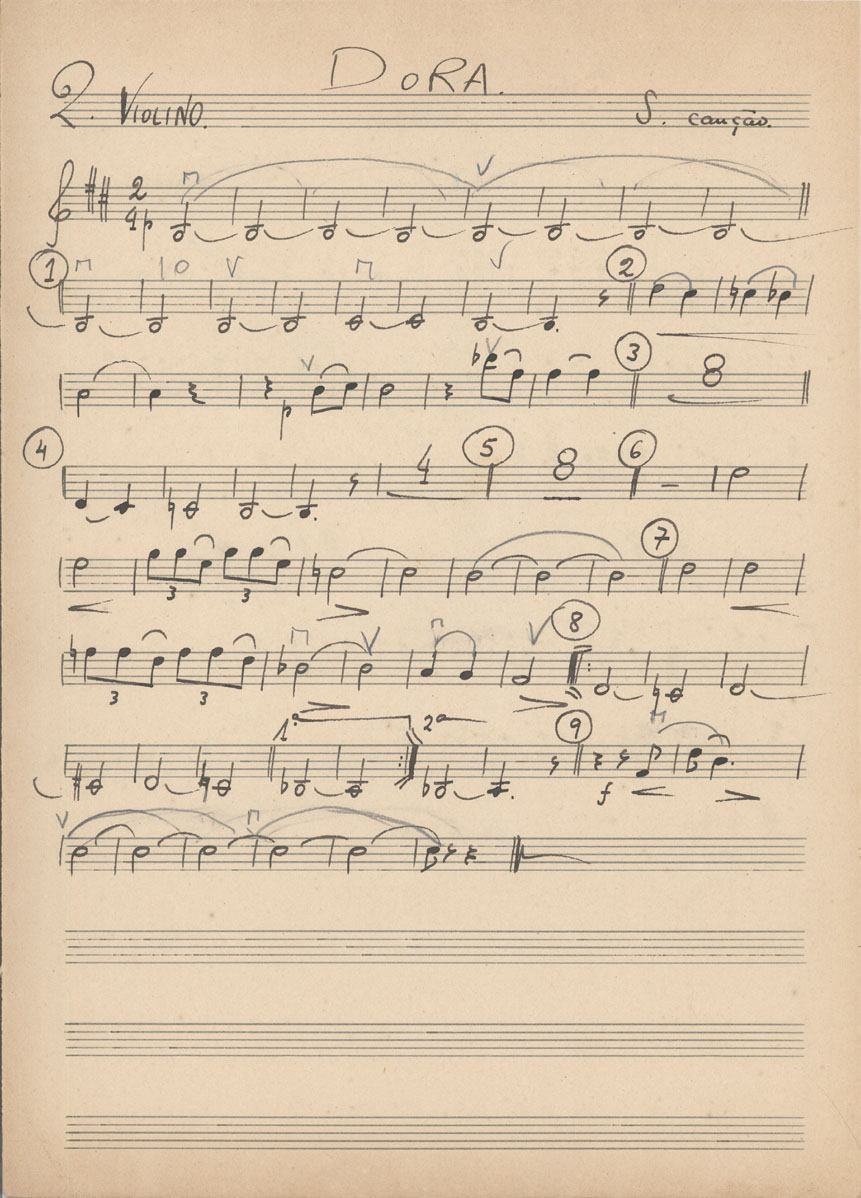 DORA.
2. VIOLINO. S. canção.
2
4 p
1 2
3
p 8
4 5 6
4 8
7
3 3
8
3 3
1ª 2ª 9
f